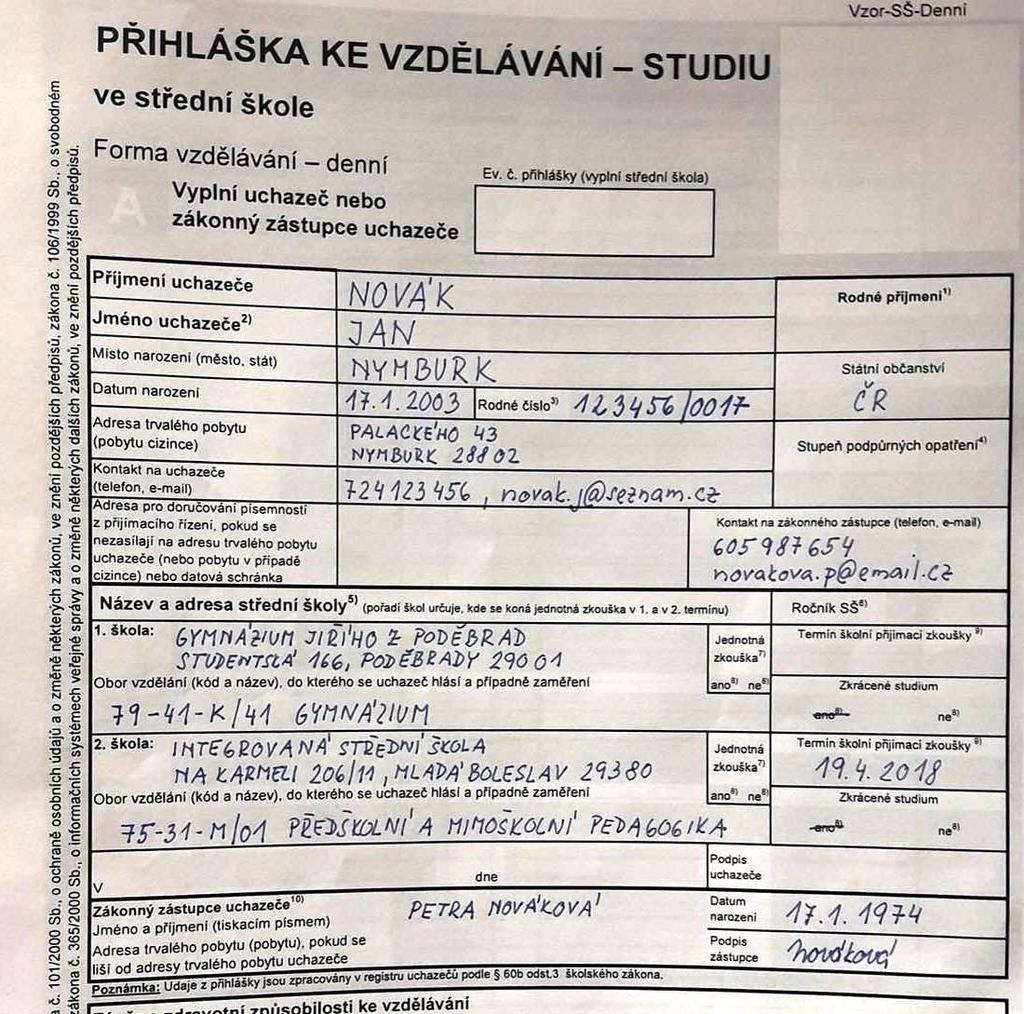 Vzor-SŠ-Denní
PŘIHLÁŠKA KE VZDĚLÁVÁNÍ – STUDIU
ve střední škole
Forma vzdělávání – denní
A
Vyplní uchazeč nebo
zákonný zástupce uchazeče
Ev. č. přihlášky (vyplní střední škola)
Příjmení uchazeče NOVÁK
Rodné příjmení1)
Jméno uchazeče2) JAN
Místo narození (město, stát) NYMBURK
Státní občanství
ČR
Datum narození 17.1.2003 Rodné číslo3) 123456/0017
Adresa trvalého pobytu
(pobytu cizince)
PALACKÉHO 43
NYMBURK 28802
Stupeň podpůrných opatření4)
Kontakt na uchazeče
(telefon, e-mail)
724123456, novak.j@seznam.cz
Adresa pro doručování písemností
z přijímacího řízení, pokud se
nezasílají na adresu trvalého pobytu
uchazeče (nebo pobytu v případě
cizince) nebo datová schránka
Kontakt na zákonného zástupce (telefon, e-mail)
605987654
novakova.p@email.cz
Název a adresa střední školy5) (pořadí škol určuje, kde se koná jednotná zkouška v 1. a v 2. termínu)
Ročník SŠ6)
1. škola: GYMNÁZIUM JIŘÍHO Z PODĚBRAD
STUDENTSKÁ 166, PODĚBRADY 29001
Jednotná
zkouška7)
ano8) ne8)
Termín školní přijímací zkoušky 9)
Obor vzdělání (kód a název), do kterého se uchazeč hlásí a případně zaměření
79-41-K/41 GYMNÁZIUM
Zkrácené studium
ano8) ne8)
2. škola: INTEGROVANÁ STŘEDNÍ ŠKOLA
NA KARMELI 206/11, MLADÁ BOLESLAV 29380
Jednotná
zkouška7)
ano8) ne8)
Termín školní přijímací zkoušky 9)
19.4.2018
Obor vzdělání (kód a název), do kterého se uchazeč hlásí a případně zaměření
75-31-M/01 PŘEDŠKOLNÍ A MIMOŠKOLNÍ PEDAGOGIKA
Zkrácené studium
ano8) ne8)
V dne
Podpis
uchazeče
Zákonný zástupce uchazeče10)
Jméno a příjmení (tiskacím písmem)
PETRA NOVÁKOVÁ
Datum
narození
17.1.1974
Adresa trvalého pobytu (pobytu), pokud se
liší od adresy trvalého pobytu uchazeče
Podpis
zástupce
Nováková
Poznámka: Údaje z přihlášky jsou zpracovány v registru uchazečů podle § 60b odst.3 školského zákona.
zdravotní způsobilosti ke vzdělávání
a č. 101/2000 Sb., o ochraně osobních údajů a o změně některých zákonů, ve znění pozdějších předpisů, zákona č. 106/1999 Sb., o svobodném
zákona č. 365/2000 Sb., o informačních systémech veřejné správy a o změně některých dalších zákonů, ve znění pozdějších předpisů.